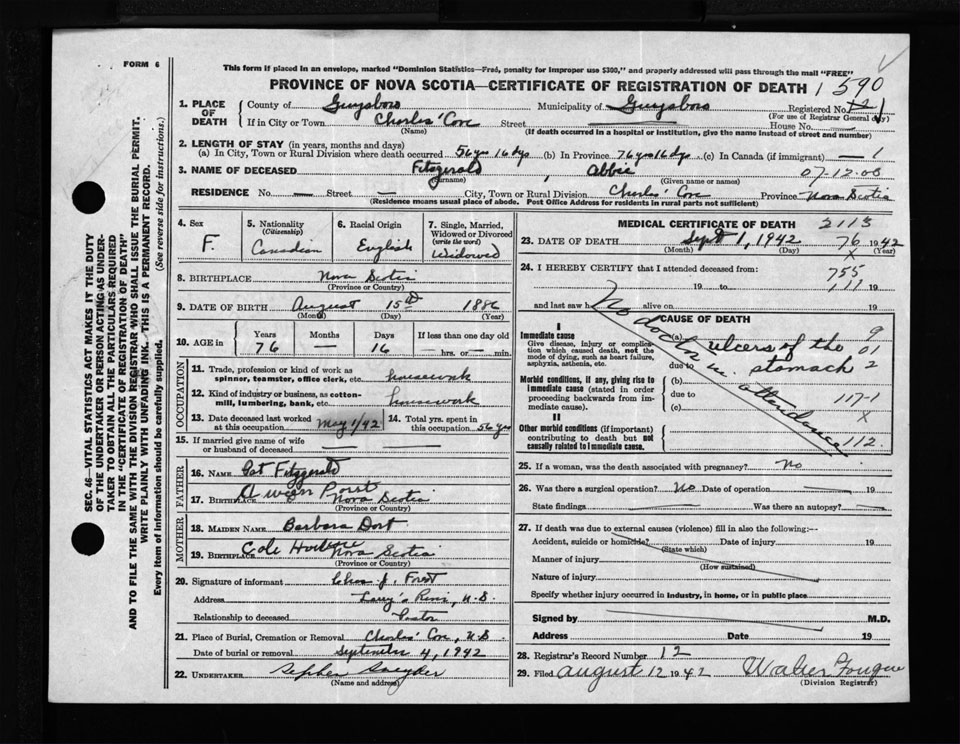 FORM 6
This form if placed in an envelope, marked "Dominion Statistics—Free, penalty for improper use $300," and properly addressed will pass through the mail "FREE"
PROVINCE OF NOVA SCOTIA—CERTIFICATE OF REGISTRATION OF DEATH
1 590
1. PLACE OF DEATH
County of Guysboro Municipality of Guysboro Registered No. 12
(For use of Registrar General only)
If in City or Town Charles' Cove Street House No.
(Name) (If death occurred in a hospital or institution, give the name instead of street and number)
2. LENGTH OF STAY (in years, months and days)
(a) In City, Town or Rural Division where death occurred 56 yrs 16 dys (b) In Province 76 yrs 16 dys (c) In Canada (if immigrant) —
3. NAME OF DECEASED Fitzgerald, Abbie 07-12.00
(Surname) (Given name or names)
RESIDENCE No. — Street — City, Town or Rural Division Charles' Cove Province Nova Scotia
(Residence means usual place of abode. Post Office Address for residents in rural parts not sufficient)
4. Sex
F.
5. Nationality
(Citizenship)
Canadian
6. Racial Origin
English
7. Single, Married, Widowed or Divorced
(write the word)
Widowed
8. BIRTHPLACE Nova Scotia
(Province or Country)
9. DATE OF BIRTH August 15th 1886
(Month) (Day) (Year)
10. AGE in
Years Months Days If less than one day old
76 — 16 — hrs. or — min.
OCCUPATION
11. Trade, profession or kind of work as spinner, teamster, office clerk, etc. housework
12. Kind of industry or business, as cotton-mill, lumbering, bank, etc. housework
13. Date deceased last worked at this occupation May 1/42
14. Total yrs. spent in this occupation 56 yrs
15. If married give name of wife or husband of deceased
FATHER
16. NAME Pat Fitzgerald
17. BIRTHPLACE Nova Scotia
(Province or Country)
MOTHER
18. MAIDEN NAME Barbara Dort
19. BIRTHPLACE Cole Harbour Nova Scotia
(Province or Country)
20. Signature of informant Chas. J. Forest
Address Larry's River, N.S.
Relationship to deceased Pastor
21. Place of Burial, Cremation or Removal Charles' Cove, N.S.
Date of burial or removal September 4, 1942
22. UNDERTAKER
(Name and address)
MEDICAL CERTIFICATE OF DEATH 2113
23. DATE OF DEATH Sept 1, 1942 76 1942
(Month) (Day) (Year)
24. I HEREBY CERTIFY that I attended deceased from:
755
19 to 19
and last saw h alive on 19
No doctor in attendance
CAUSE OF DEATH
I
Immediate cause
Give disease, injury or complication which caused death, not the mode of dying, such as heart failure, asphyxia, asthenia, etc.
(a) ulcers of the
due to stomach
Morbid conditions, if any, giving rise to immediate cause (stated in order proceeding backwards from immediate cause).
(b)
due to
(c)
117-1
X
II
Other morbid conditions (if important) contributing to death but not causally related to immediate cause.
112.
25. If a woman, was the death associated with pregnancy? No
26. Was there a surgical operation? No Date of operation 19
State findings Was there an autopsy?
27. If death was due to external causes (violence) fill in also the following:—
Accident, suicide or homicide? Date of injury 19
(State which)
Manner of injury
(How sustained)
Nature of injury
Specify whether injury occurred in industry, in home, or in public place
Signed by M.D.
Address Date 19
28. Registrar's Record Number 12
29. Filed August 12 1942
(Division Registrar)
SEC. 46—VITAL STATISTICS ACT MAKES IT THE DUTY
OF THE UNDERTAKER OR PERSON ACTING AS UNDERTAKER TO OBTAIN ALL THE PARTICULARS REQUIRED
IN THE "CERTIFICATE OF REGISTRATION OF DEATH"
AND TO FILE THE SAME WITH THE DIVISION REGISTRAR WHO SHALL ISSUE THE BURIAL PERMIT.
WRITE PLAINLY WITH UNFADING INK. THIS IS A PERMANENT RECORD.
Every item of information should be carefully supplied. (See reverse side for instructions.)